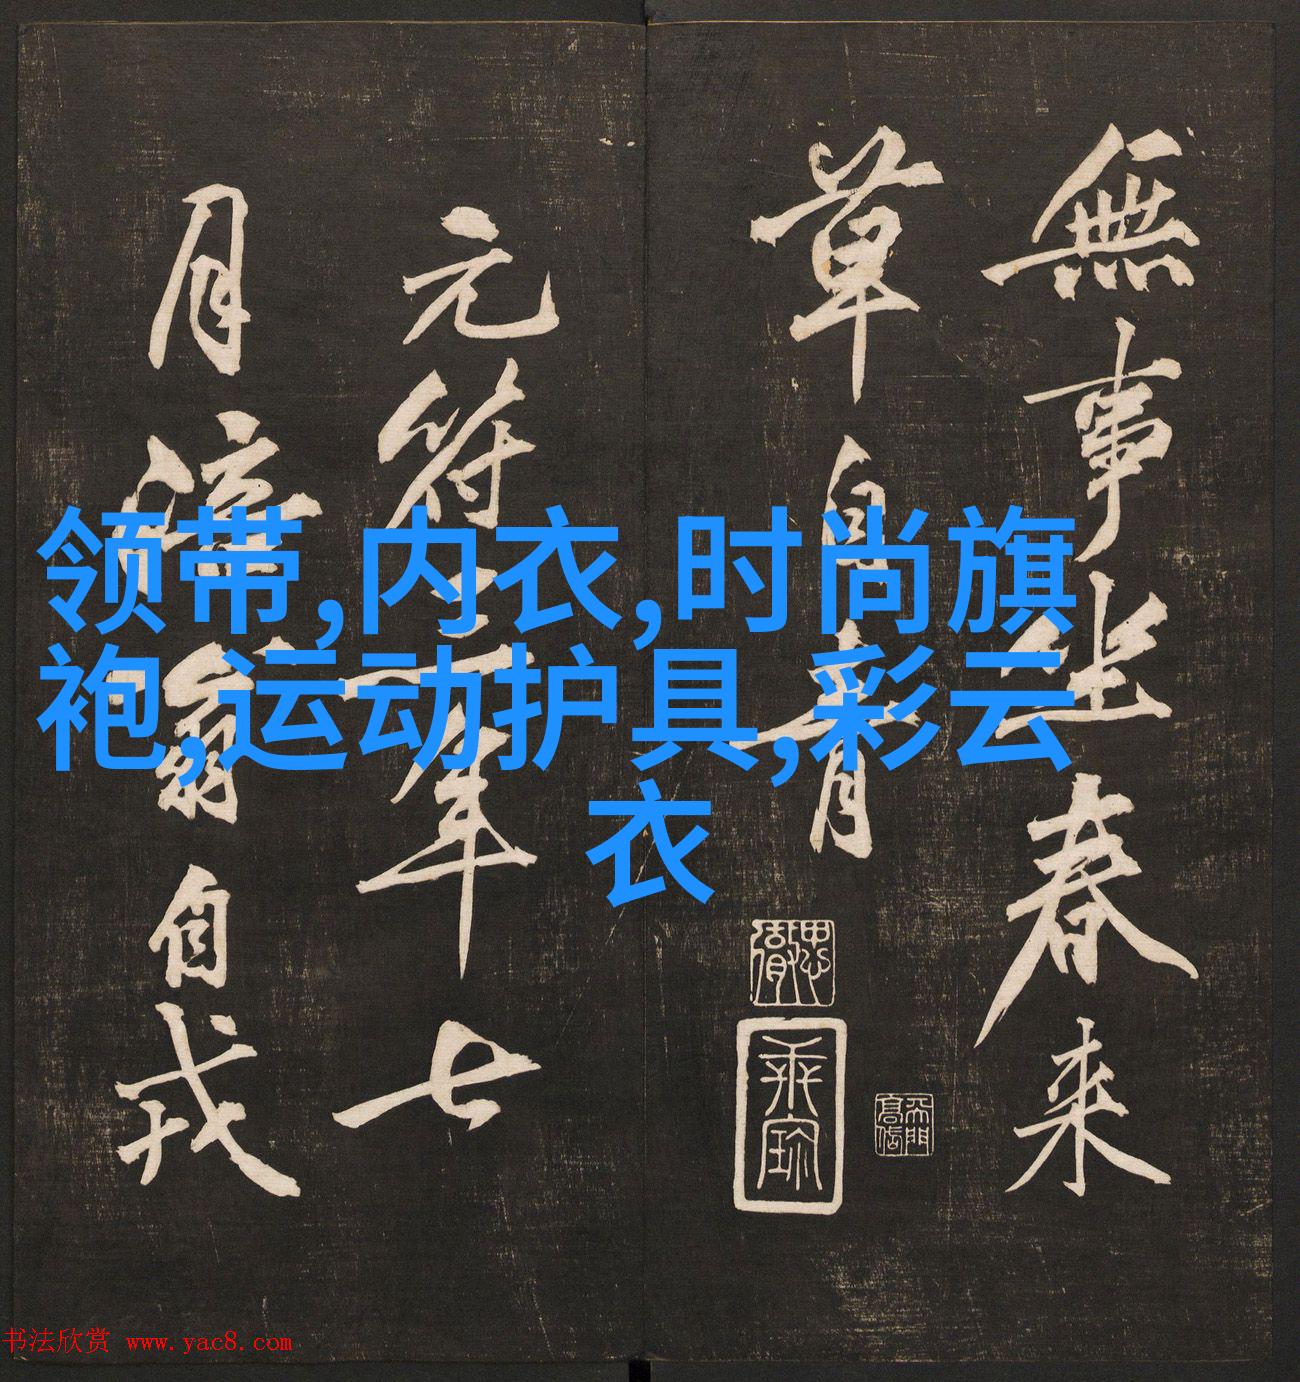 無事坐春来
草自青
元符二年七
月涪翁自戎
领带,内衣,时尚旗
袍,运动护具,彩云
衣
书法欣赏 www.yac8.com